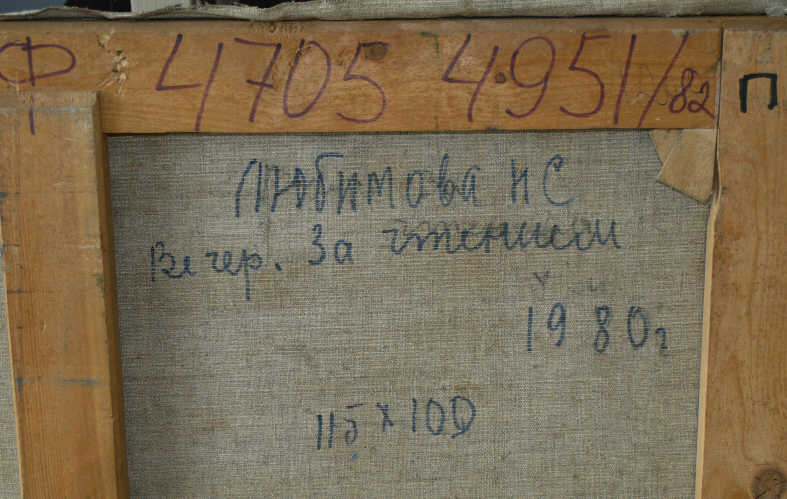 Ф 4705 4951/82 П
Любимова Н С
Вечер. За чтением
1980г
115 х 100